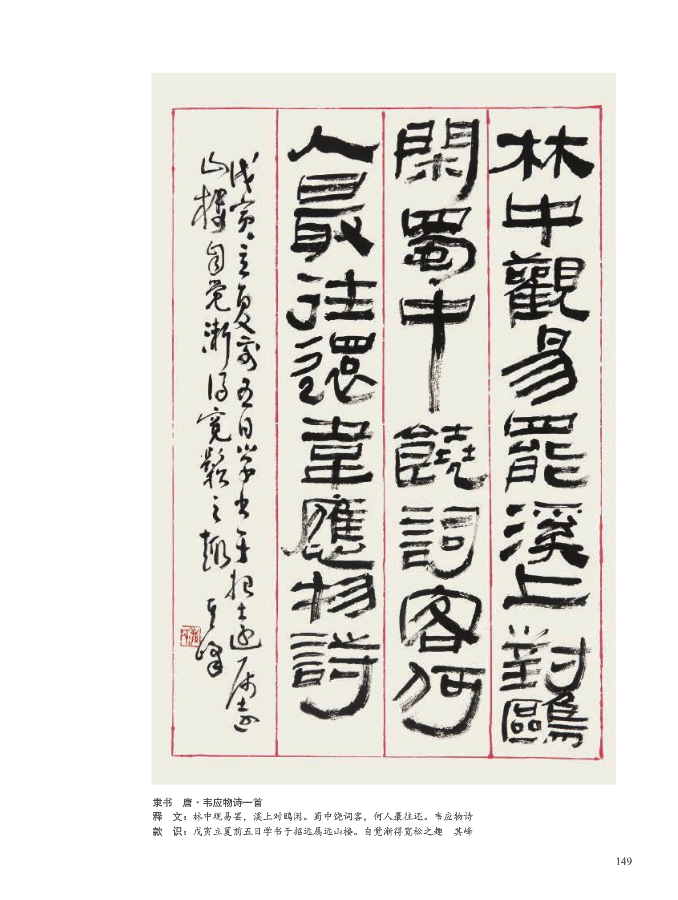 林中觀易罷溪上對鷗
閑蜀中饒詞客何
人最往還韋應物詩
戊寅立夏前五日学书于招远属远
山楼自觉渐得寛鬆之趣 其峰
隶书 唐·韦应物诗一首
释 文：林中观易罢，溪上对鸥闲。蜀中饶词客，何人最往还。韦应物诗
款 识：戊寅立夏前五日学书于招远属远山楼。自觉渐得宽松之趣 其峰
149